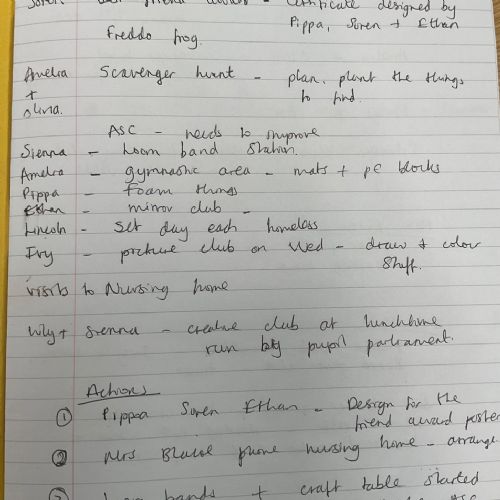 Soren - friend award - certificate designed by
Pippa, Soren + Ethan
Freddo frog.
Amelia Scavenger hunt - plan, plant the things
+ to find.
Olivia.
ASC - needs to improve
Sienna - Loom band station.
Amelia - gymnastic area - mats + PE blocks
Pippa - Foam things
Ethan - mirror club -
Lincoln - set day each homeless
Ivy - picture club on Wed - draw + colour
stuff.
Visits to Nursing home
Sienna - creative club at lunchtime
run by pupil parliament.
Actions
① Pippa Soren Ethan - Design for the
friend award poster
② Mrs phone nursing home - arrange
bands + craft table started